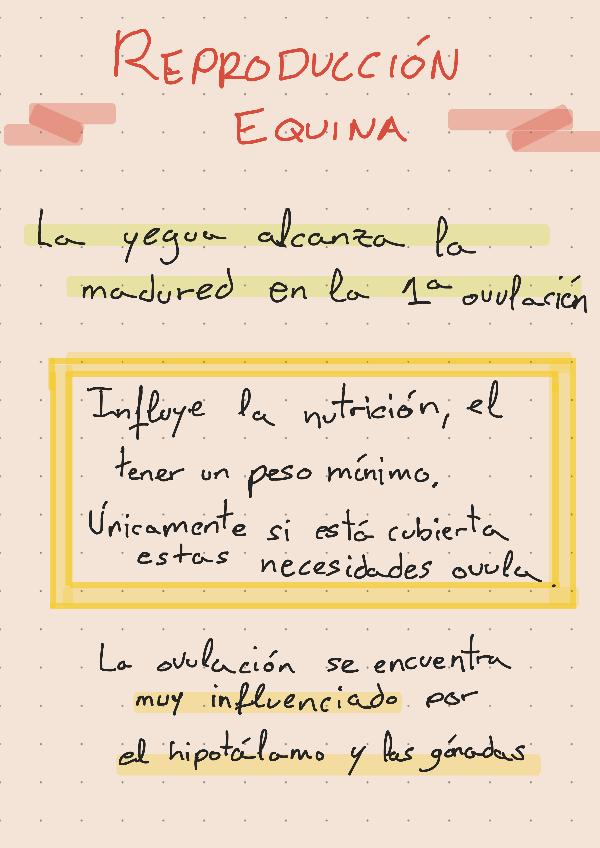 REPRODUCCIÓN
EQUINA
La yegua alcanza la
madured en la 1ª ovulación
Influye la nutrición, el
tener un peso mínimo.
Únicamente si está cubierta
estas necesidades ovula.
La ovulación se encuentra
muy influenciado por
el hipotálamo y las gónadas